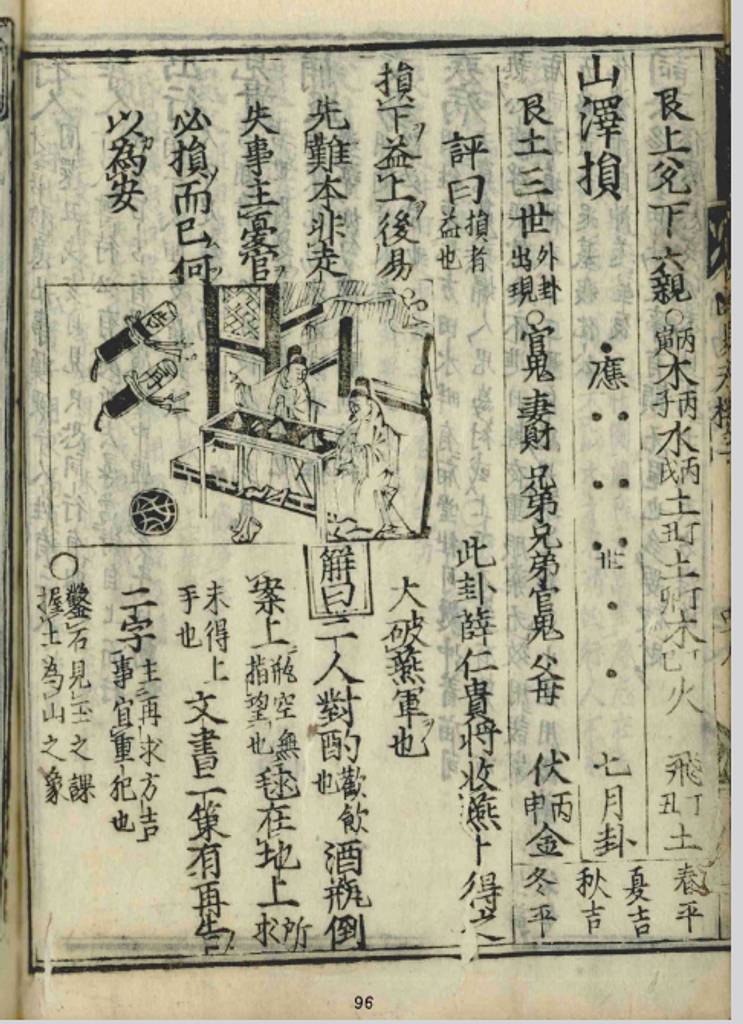 艮上兌下六親○丙寅木丙子水丙戌土丁丑土丁卯木丁巳火 飛丁丑土
山澤損 應 世 七月卦
艮土三世外卦出現○官鬼妻財兄弟兄弟官鬼父母 伏丙申金
春平
夏吉
秋吉
冬平
評曰損者益也
損下益上後易
先難本非走
失事主憂官
必損而已何
以為安
此卦薛仁貴將收燕卜得之
大破燕軍也
解曰二人對酌歡飲也酒瓶倒
案上瓶空無指望也毬在地上所求
未得上手也文書二策有再告
二字主再求方吉事宜重犯也
○鑿石見玉之課
握土為山之象
96